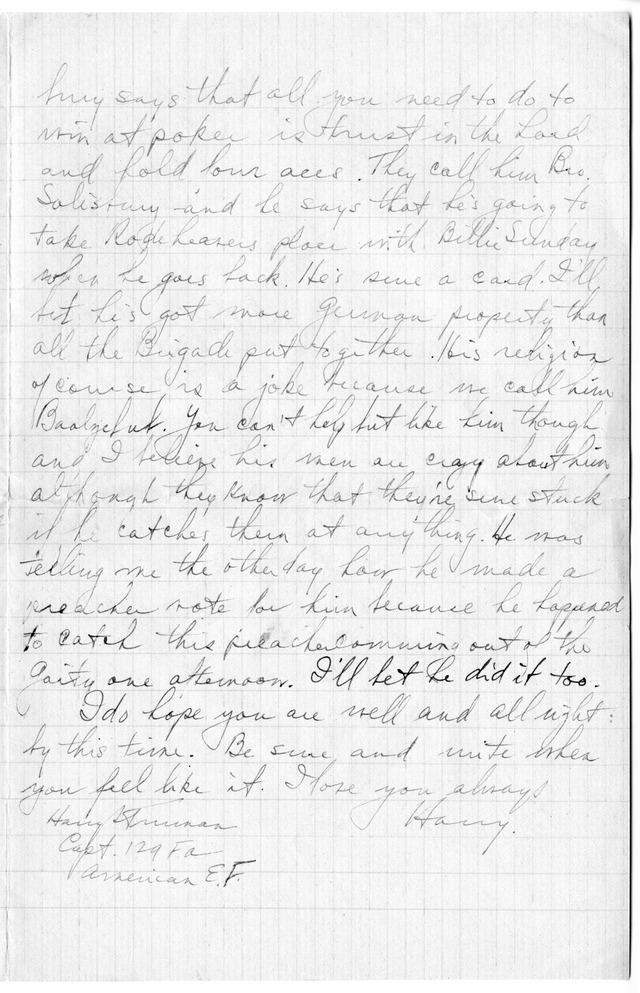 bury says that all you need to do to
win at poker is trust in the Lord
and hold four aces. They call him Bro.
Salisbury and he says that he's going to
take Rodeheavers place with Billie Sunday
when he goes back. He's sure a card. I'll
bet he's got more German property than
all the Brigade put together. His religion
of course is a joke because we call him
You can't help but like him though
and I believe his men are crazy about him
although they know that they're sure stuck
if he catches them at anything. He was
telling me the other day how he made a
preacher vote for him because he happened
to catch this preacher comming out of the
Gaity one afternoon. I'll bet he did it too.
I do hope you are well and all right
by this time. Be sure and write when
you feel like it. I love you always
Harry.
Harry S Truman
Capt. 129 Fa
American E.F.